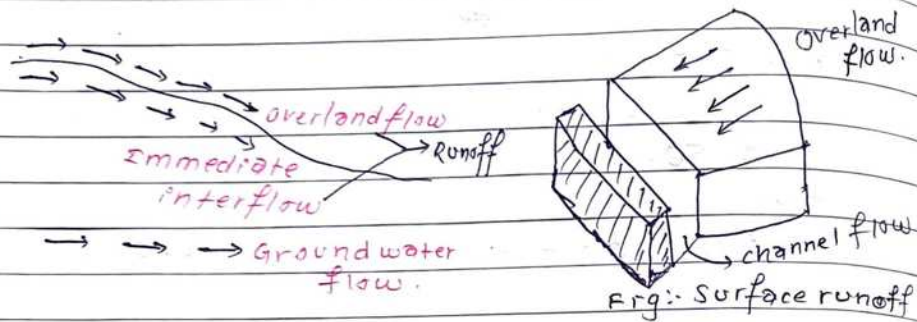 overland flow
Immediate
interflow
Runoff
Groundwater
flow.
Overland
flow.
channel flow
Frg:- Surface runoff